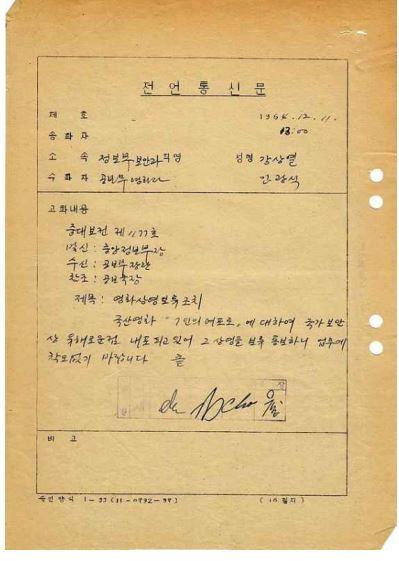 전언통신문
제 호
1964. 12. 11.
13:00
송화자
소 속 정보부 보안과 직명 성명 강상열
수화자 공보부 영화과 민광식
고화내용
중대보건 제 1177호
발신 : 중앙정보부장
수신 : 공보부장관
참조 : 공보국장
제목 : 영화상영보류조치
국산영화 "7인의 여포로" 에 대하여 국가보안
상 유해로운점 내포되고 있어 그 상영을 보류 통보하니 업무에
착오없기 바랍니다 끝
비 고